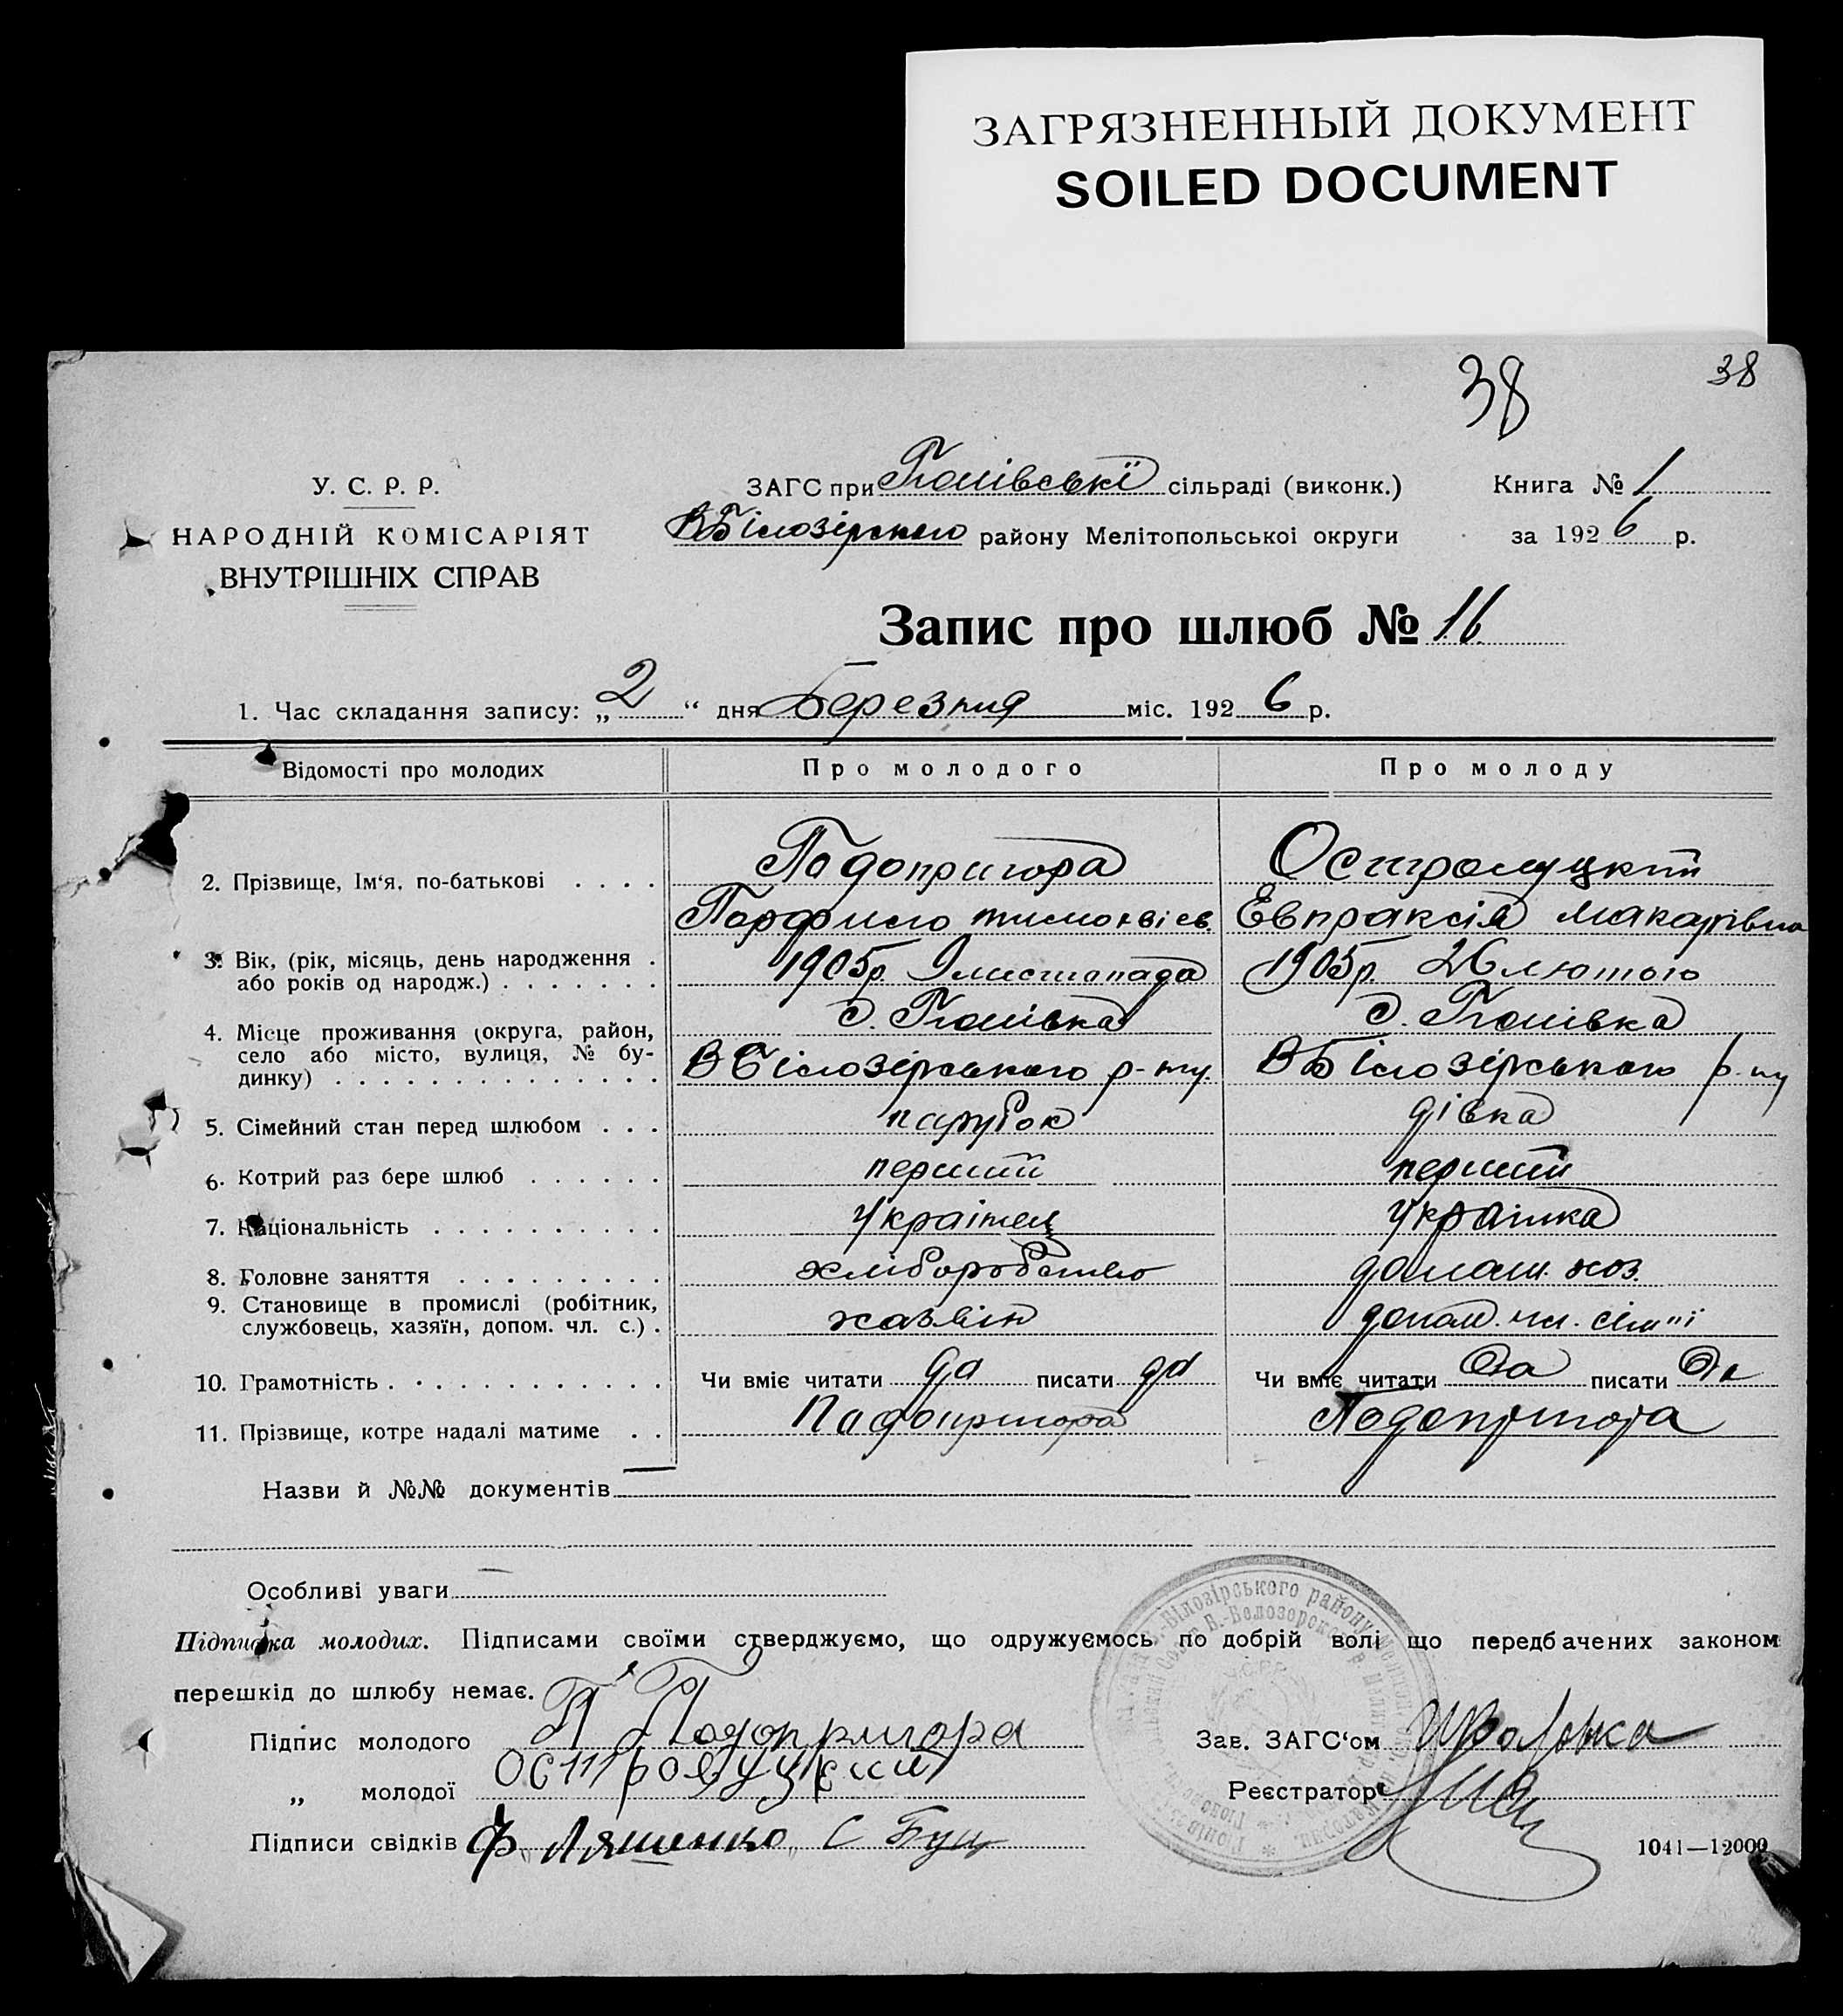 ЗАГРЯЗНЕННЫЙ ДОКУМЕНТ
SOILED DOCUMENT
38
38
У. С. Р. Р.
НАРОДНІЙ КОМІСАРІЯТ
ВНУТРІШНІХ СПРАВ
ЗАГС при Гюнівські сільраді (виконк.)
Книга № 1
ВБілозірського району Мелітопольської округи
за 1926 р.
Запис про шлюб № 16
1. Час складання запису: „2“ дня Березня міс. 1926 р.
Відомості про молодих
Про молодого
Про молоду
2. Прізвище, Ім‘я, по-батькові . . . .
Падопригора
Остролуцкий
Парфило тимохвієв.
Евпраксія Макарівна
3. Вік, (рік, місяць, день народження .
або років од народж.) . . . . . . .
1905р. 9 листопада
1905р. 26 лютого
4. Місце проживання (округа, район,
село або місто, вулиця, № бу-
динку) . . . . . . . . . . . . . .
с. Гюнівка
с. Гюнівка
ВБілозірського р-ну.
ВБілозірського р-ну
5. Сімейний стан перед шлюбом . . .
парубок
дівка
6. Котрий раз бере шлюб . . . . . .
перший
перший
7. Національність . . . . . . . . . .
Українец
Українка
8. Головне заняття . . . . . . . . .
хліборобство
домаш. хоз.
9. Становище в промислі (робітник,
службовець, хазяїн, допом. чл. с.) .
хазяін
допом. чл. сім"ї
10. Грамотність . . . . . . . . . . . .
Чи вміє читати да писати да
Чи вміє читати Да писати Да
11. Прізвище, котре надалі матиме . .
Падопригора
Подопригора
Назви й №№ документів
Особливі уваги
Підписка молодих. Підписами своїми стверджуємо, що одружуємось по добрій волі що передбачених законом
перешкід до шлюбу немає.
Підпис молодого П Подопригора
Зав. ЗАГС‘ом
„ молодої Остролуцкий
Реєстратор
Підписи свідків Ф Ляшенко С Буц
1041—12000